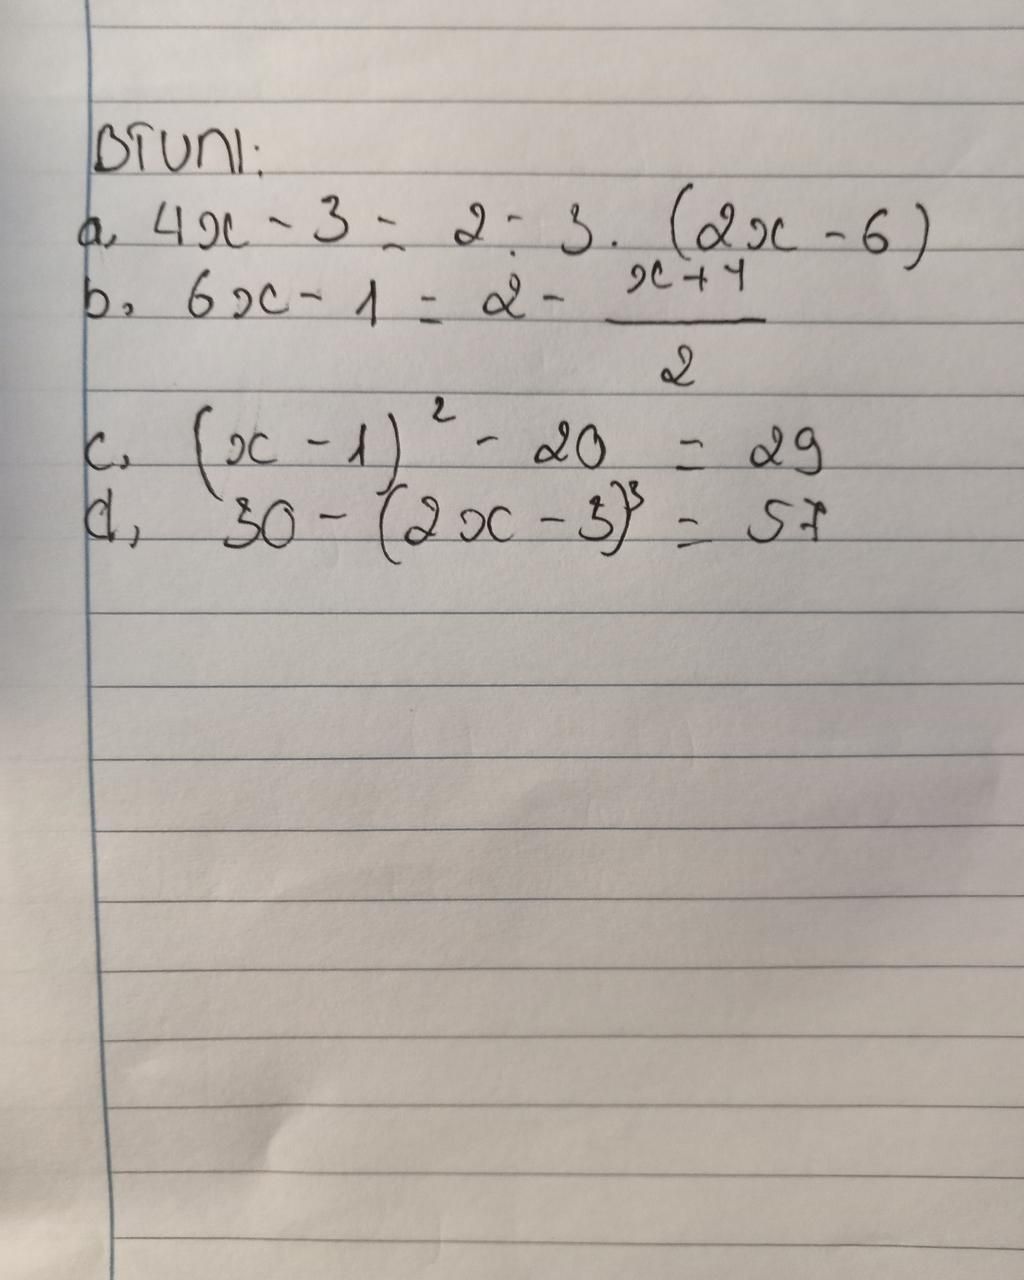 BTUNI:
a, 4x - 3 = 2 : 3 . (2x - 6)
b, 6x - 1 = 2 - \frac{x + 4}{2}
c, (x - 1)² - 20 = 29
d, 30 - (2x - 3)³ = 57